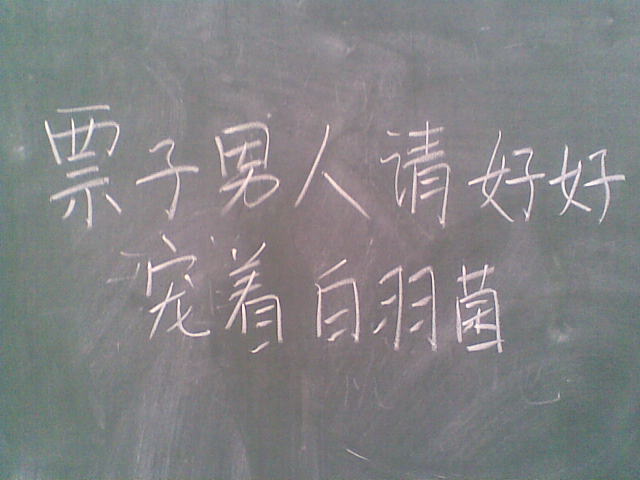 票子男人请好好
宠着白羽菌